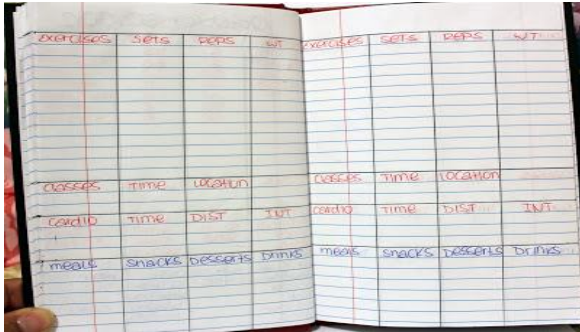 exercises sets reps WT
classes Time Location
cardio Time DIST INT
meals snacks Desserts Drinks
exercises sets reps WT
classes Time Location
cardio Time DIST INT
meals snacks Desserts Drinks